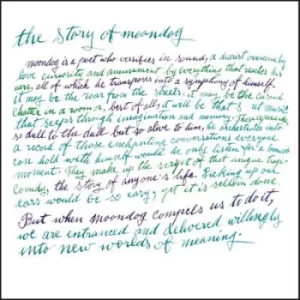 the story of moondog
moondog is a poet who versifies in sound, a diarist overcome by
love curiosity and amusement by everything that reaches his
ears, all of which he transposes into a symphony of himself.
it may be the roar from the streets. it may be the casual
chatter in a room, best of all, it will be that music
that seeps through imagination and memory. These
so dull to the dull but so alive to him, he orchestrates into
a record of those enchanting conversations everyone
can hold with himself would he only listen for a
moment. They make up the script of that unique
comedy, the story of anyone's life. Picking up our
ears would be so easy; yet it is seldom done.
But when moondog compels us to do it,
we are entranced and delivered willingly
into new worlds of meaning.